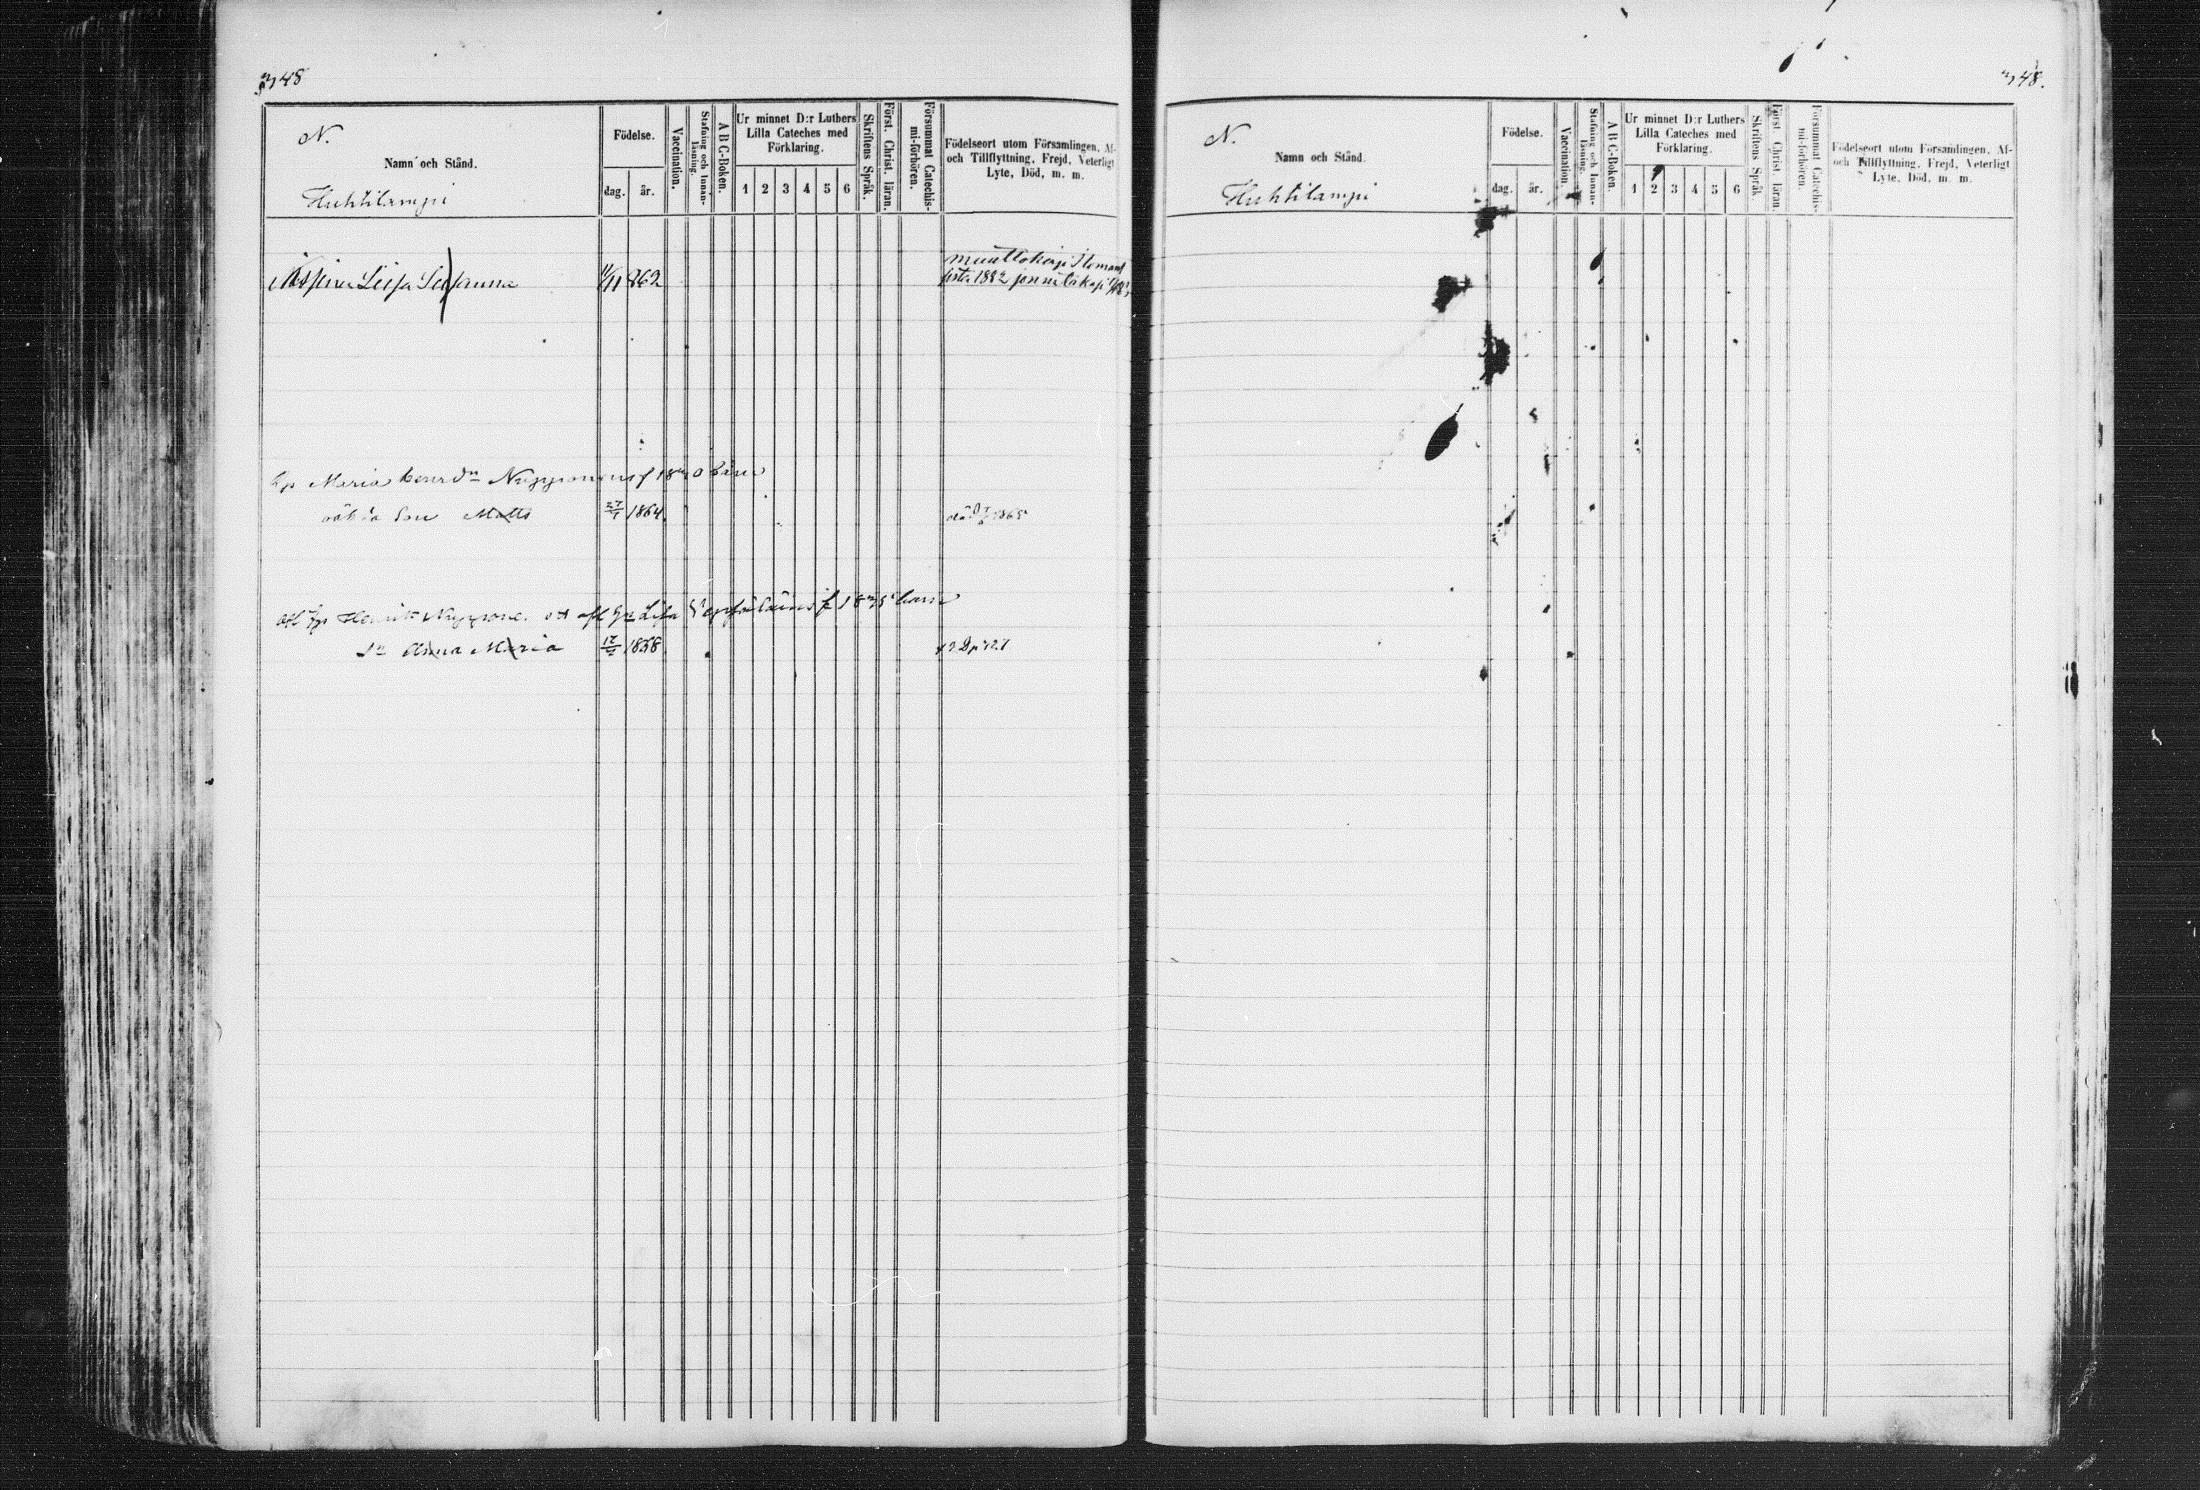 348
N.
Namn och Stånd.
Huhtilampi
Födelse.
dag. år.
Vaccination.
Stafning och Innan-
läsning.
A B C-Boken.
Ur minnet D:r Luthers
Lilla Cateches med
Förklaring.
1 2 3 4 5 6
Skriftens Språk.
Först. Christ. läran.
Försummat Catechis-
mi-förhören.
Födelseort utom Församlingen, Af-
och Tillflyttning, Frejd, Veterligt
Lyte, Död, m. m.
Liisa Susanna 11/11 862
muuttokirja
1882
Maria Nuppönens
son Matts 1864 1865
Henrik Lisa barn
Anna Maria 1858
348.
N.
Namn och Stånd.
Huhtilampi
Födelse.
dag. år.
Vaccination.
Stafning och Innan-
läsning.
A B C-Boken.
Ur minnet D:r Luthers
Lilla Cateches med
Förklaring.
1 2 3 4 5 6
Skriftens Språk.
Först. Christ. läran.
Försummat Catechis-
mi-förhören.
Födelseort utom Församlingen, Af-
och Tillflyttning, Frejd, Veterligt
Lyte, Död, m. m.